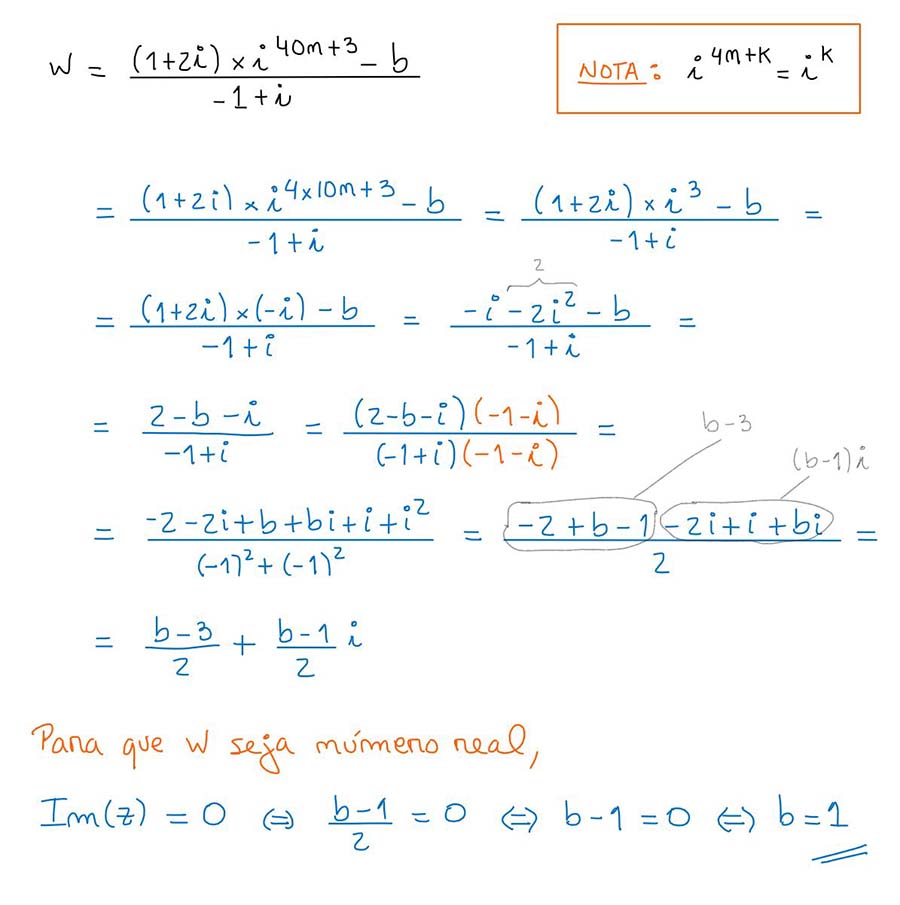 w = ((1+2i) × i^(40n+3) - b)/(-1+i)
NOTA: i^(4n+k) = i^k
= ((1+2i) × i^(4×10n+3) - b)/(-1+i) = ((1+2i) × i^3 - b)/(-1+i) =
= ((1+2i) × (-i) - b)/(-1+i) = (-i - 2i^2 - b)/(-1+i) =
2
= (2-b-i)/(-1+i) = ((2-b-i)(-1-i))/((-1+i)(-1-i)) =
b-3
(b-1)i
= (-2-2i+b+bi+i+i^2)/((-1)^2+(-1)^2) = (-2+b-1-2i+i+bi)/2 =
= (b-3)/2 + (b-1)/2 i
Para que w seja número real,
Im(z) = 0 ⇔ (b-1)/2 = 0 ⇔ b-1=0 ⇔ b=1